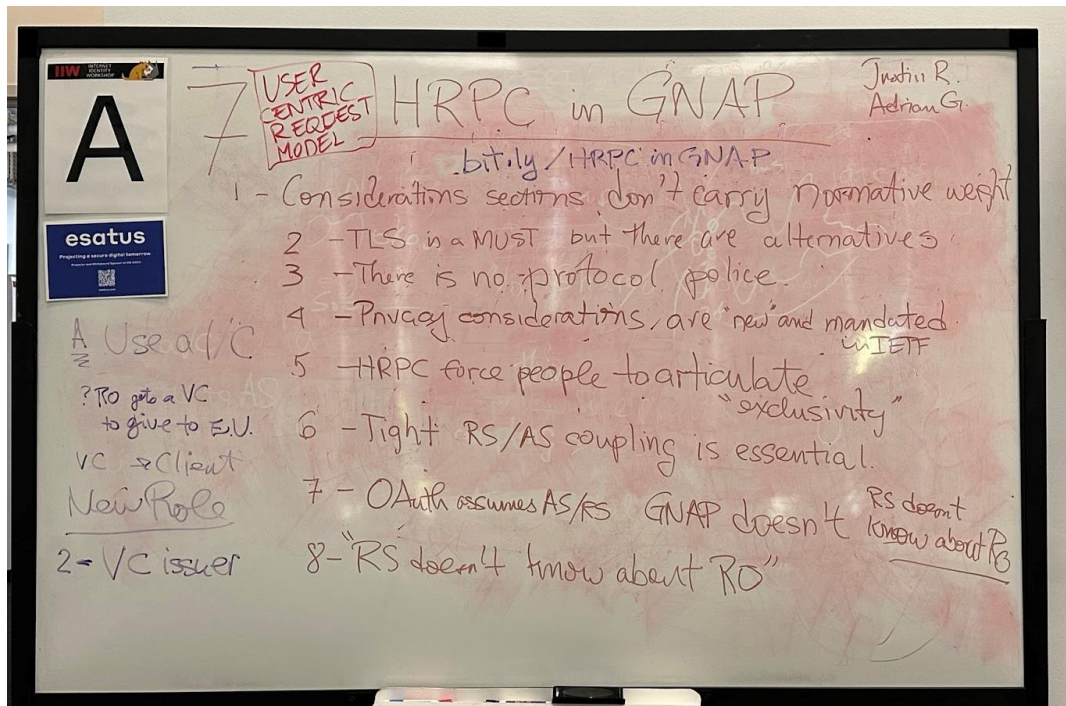 IIW INTERNET IDENTITY WORKSHOP
A
esatus
Projecting a secure digital tomorrow
7
USER
CENTRIC
REQEST
MODEL
HRPC in GNAP
Justin R.
Adrian G.
bit.ly/HRPCinGNAP
1 - Considerations sections don't carry normative weight
2 - TLS is a MUST but there are alternatives
3 - There is no protocol police.
4 - Privacy considerations are "new" and mandated
in IETF
5 - HRPC force people to articulate
"exclusivity"
6 - Tight RS/AS coupling is essential.
7 - OAuth assumes AS/RS GNAP doesn't
RS doesnt
know about RO
8 - "RS doesn't know about RO"
A Use a VC
? RO gets a VC
to give to E.U.
VC → Client
New Role
2 - VC issuer